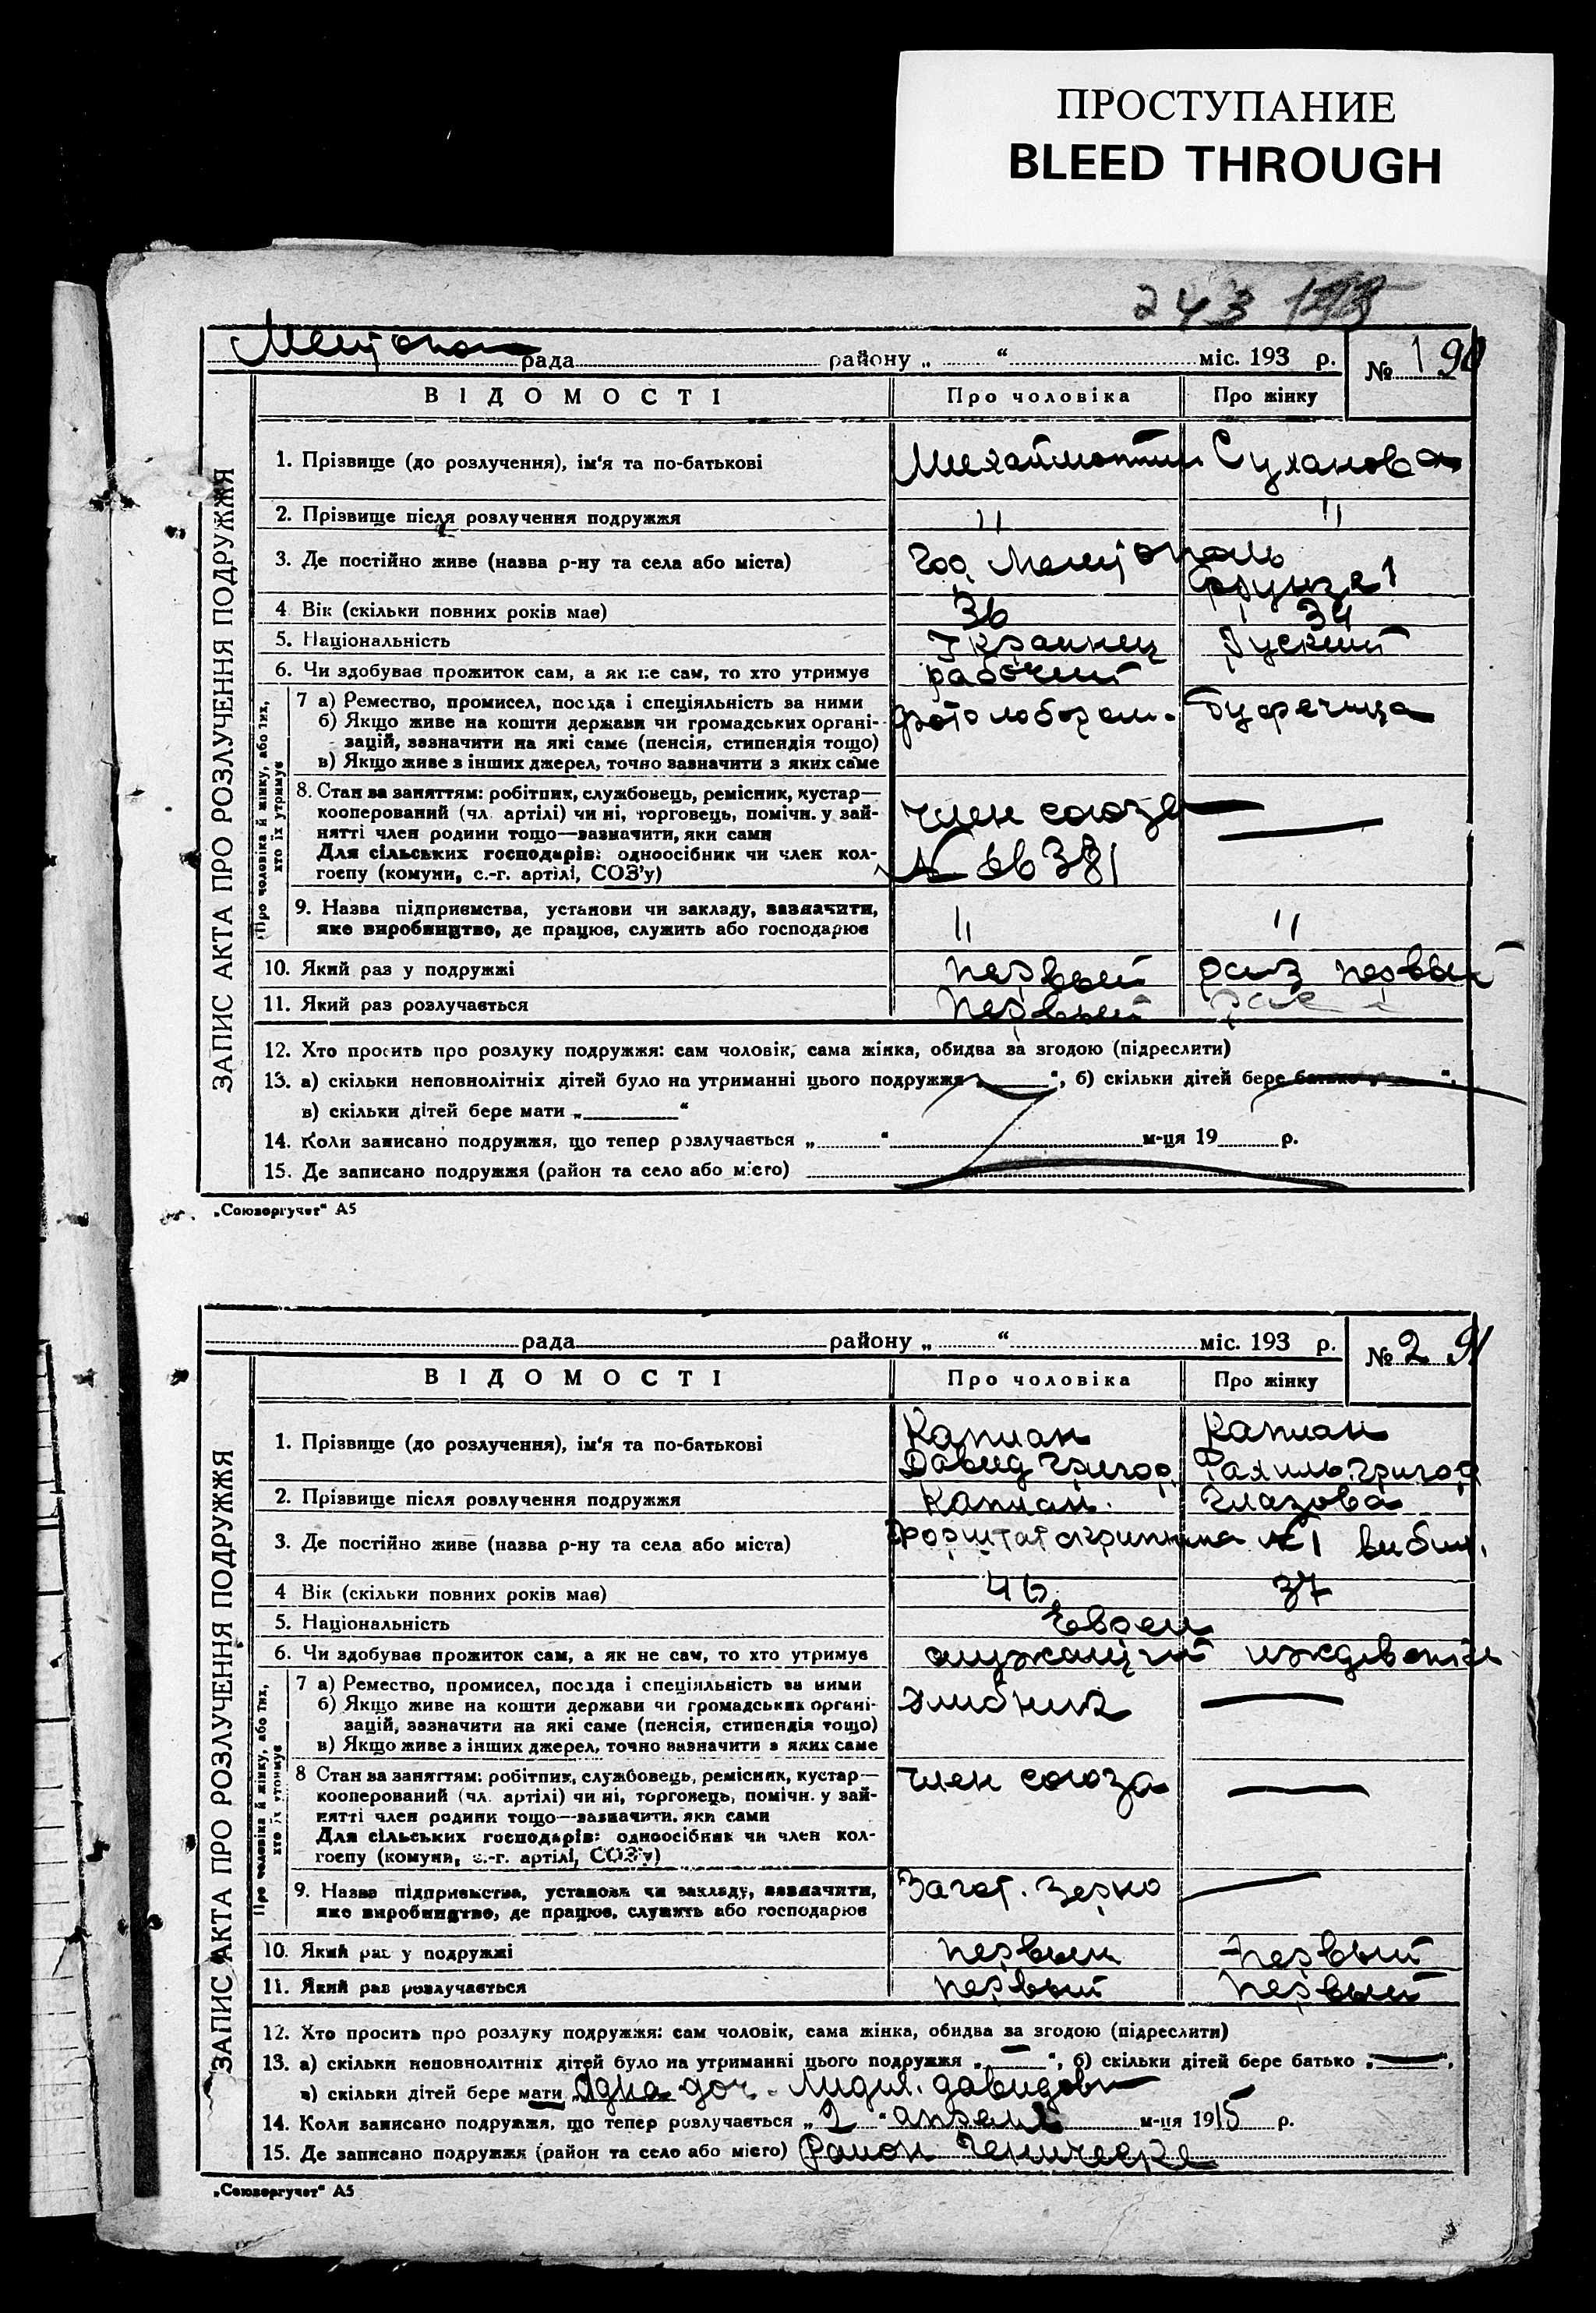 ПРОСТУПАНИЕ
BLEED THROUGH
243
ЗАПИС АКТА ПРО РОЗЛУЧЕННЯ ПОДРУЖЖЯ
рада району „ “ міс. 193 р. № 1 90
ВІДОМОСТІ Про чоловіка Про жінку
1. Прізвище (до розлучення), ім'я та по-батькові Суханова
2. Прізвище після розлучення подружжя " "
3. Де постійно живе (назва р-ну та села або міста) гор Мелитополь
Фрунзе 1
4 Вік (скільки повних років має) 36 34
5. Національність Украинец Руский
6. Чи здобуває прожиток сам, а як не сам, то хто утримує рабочий
Про чоловіка й жінку, або тих, хто їх утримує
7 а) Ремество, промисел, посада і спеціяльність за ними Буфечица
б) Якщо живе на кошти держави чи громадських організацій, зазначити на які саме (пенсія, стипендія тощо)
в) Якщо живе з інших джерел, точно зазначити з яких саме
8. Стан за заняттям: робітник, службовець, ремісник, кустар—
кооперований (чл. артілі) чи ні, торговець, помічн. у зай- член союза —
нятті член родини тощо—зазначити, яки сами
Для сільських господарів: одноосібник чи член кол-
госпу (комуни, с.-г. артілі, СОЗ'у)
9. Назва підприємства, установи чи закладу, зазначити, " "
яке виробництво, де працює, служить або господарює
10. Який раз у подружжі первый раз первый
11. Який раз розлучається первый раз
12. Хто просить про розлуку подружжя: сам чоловік, сама жінка, обидва за згодою (підреслити)
13. а) скільки неповнолітніх дітей було на утриманні цього подружжя „ “, б) скільки дітей бере батько „ “,
в) скільки дітей бере мати „ “
14. Коли записано подружжя, що тепер розлучається „ “ м-ця 19 р.
15. Де записано подружжя (район та село або місто)
„Союзоргучет“ А5
ЗАПИС АКТА ПРО РОЗЛУЧЕННЯ ПОДРУЖЖЯ
рада району „ “ міс. 193 р. № 2 91
ВІДОМОСТІ Про чоловіка Про жінку
1. Прізвище (до розлучення), ім'я та по-батькові Каплан Каплан
Давид Григор. Рахиль Григор
2. Прізвище після розлучення подружжя Каплан. Глазова
3. Де постійно живе (назва р-ну та села або міста) Форштат №1
4 Вік (скільки повних років має) 46. 37
5. Національність Евреи
6. Чи здобуває прожиток сам, а як не сам, то хто утримує служащий
Про чоловіка й жінку, або тих, хто їх утримує
7 а) Ремество, промисел, посада і спеціяльність за ними —
б) Якщо живе на кошти держави чи громадських органі-
зацій, зазначити на які саме (пенсія, стипендія тощо)
в) Якщо живе з інших джерел, точно зазначити з яких саме
8 Стан за заняттям: робітник, службовець, ремісник, кустар— член союза —
кооперований (чл. артілі) чи ні, торговець, помічн. у зай-
нятті член родини тощо—зазначити, яки сами
Для сільських господарів: одноосібник чи член кол-
госпу (комуни, с.-г. артілі, СОЗ'у)
9. Назва підприємства, установи чи закладу, зазначити, Загот. Зерно —
яке виробництво, де працює, служить або господарює
10. Який раз у подружжі первый первый
11. Який раз розлучається первый первый
12. Хто просить про розлуку подружжя: сам чоловік, сама жінка, обидва за згодою (підреслити)
13. а) скільки неповнолітніх дітей було на утриманні цього подружжя „—“, б) скільки дітей бере батько „—“,
в) скільки дітей бере мати одна доч. Лидия. Давидовн
14. Коли записано подружжя, що тепер розлучається „2“ апреля м-ця 1915 р.
15. Де записано подружжя (район та село або місто) район
„Союзоргучет“ А5